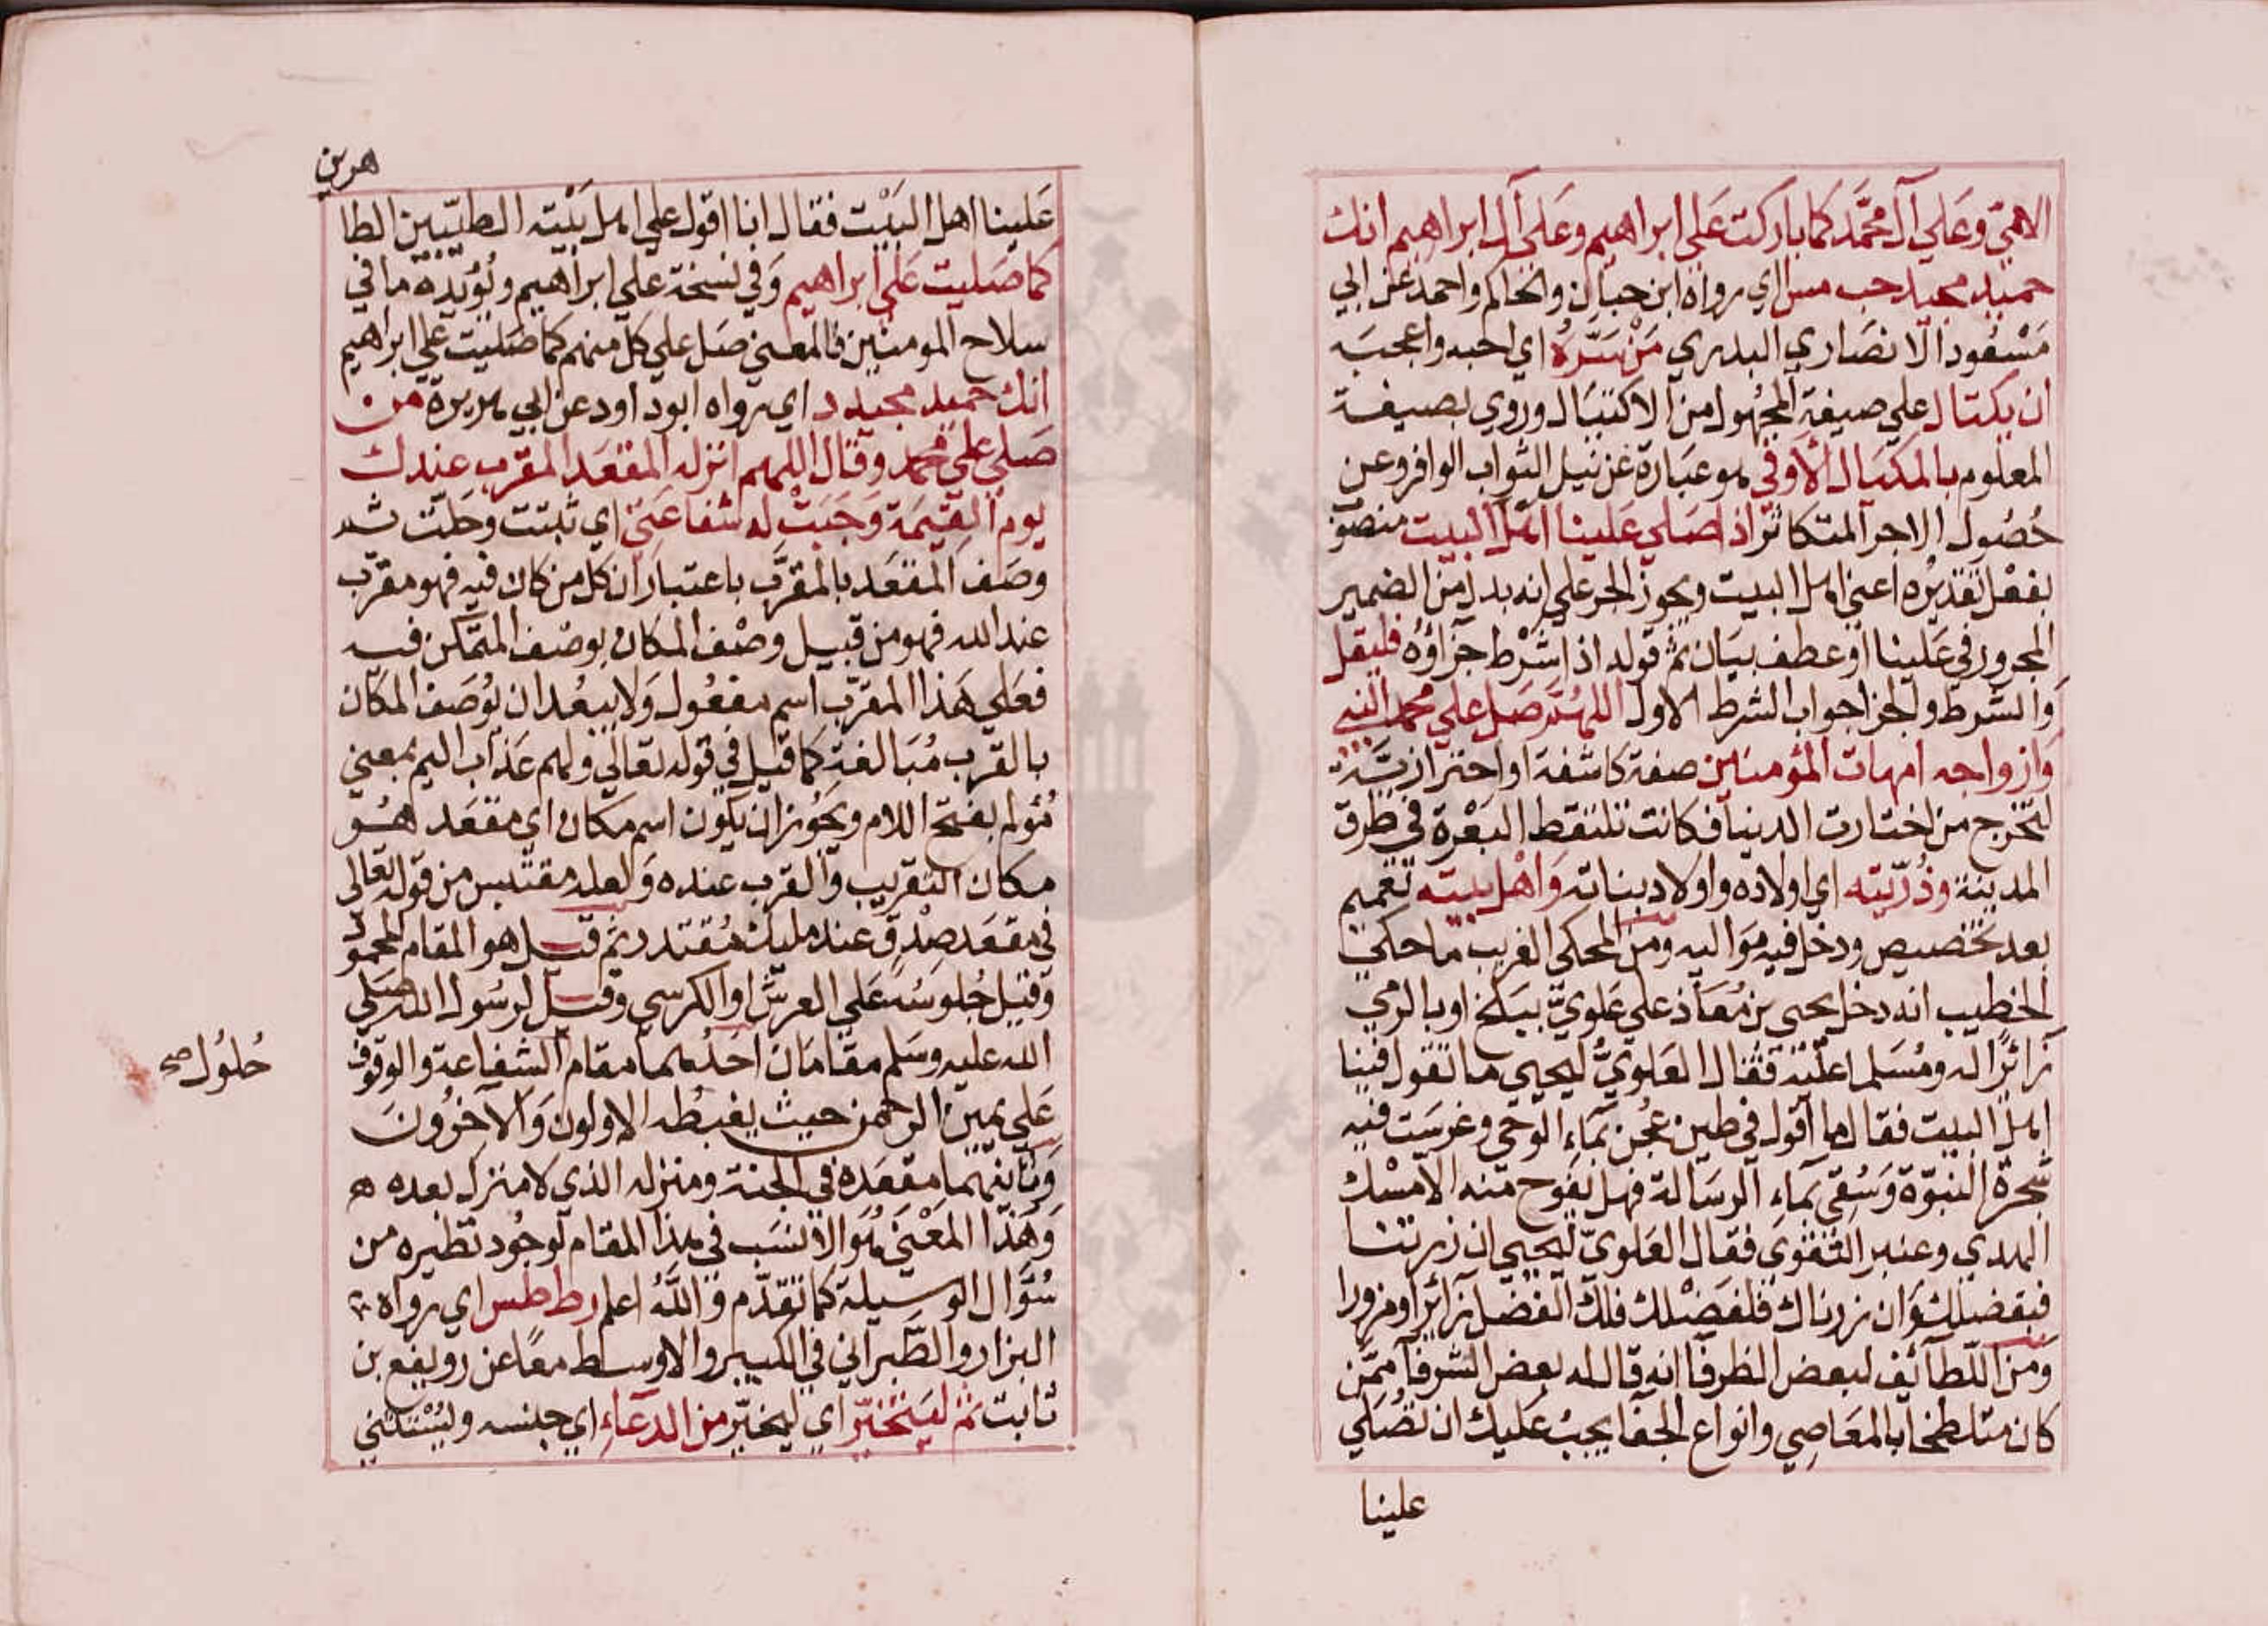 الامي وعلي آل محمد كما باركت علي ابراهيم وعلي آل ابراهيم انك
حميد مجيد حب مس اي رواه ابن حبان والحاكم واحمد عن ابي
مسعود الانصاري البدري من سره اي احبه واعجبه
ان يكتال علي صيغة المجهول من الاكتيال وروي بصيغة
المعلوم بالمكيال الاوفي هو عبارة عن نيل الثواب الوافر وعن
حصول الاجر المتكاثر اذا صلي علينا اهل البيت منصوب
بفعل تقديره اعني اهل البيت ويجوز الجر علي انه بدل من الضمير
المجرور في علينا او عطف بيان ثم قوله اذا شرط جزاؤه فليقل
والشرط والجزا جواب الشرط الاول اللهم صل علي محمد النبي
وازواجه امهات المؤمنين صفة كاشفة او احتراز يّة
لتخرج من اختارت الدنيا فكانت تلتقط البعرة في طرق
المدينة وذريته اي اولاده واولاد بناته واهل بيته تعميم
بعد تخصيص ودخل فيه مواليه ومن المحكي الغريب ما حكي
الخطيب انه دخل يحيي بن معاذ علي علوي ببلخ او بالرمي
زائرا له ومسلما عليه فقال العلوي ليحيي ما تقول فينا
اهل البيت فقال ما اقول في طين عجن بماء الوحي وغرست فيه
شجرة النبوة وسقي بماء الرسالة فهل يفوح منه الا مسك
الهدي وعنبر التقوي فقال العلوي ليحيي ان زرتنا
فبفضلك وان زرناك فلفضلك فلك الفضل زائرا ومزورا
ومن اللطائف لبعض الظرفا انه قال له بعض الشرفا ممن
كان متلطخا بالمعاصي وانواع الجفا يجب عليك ان تصلي
علينا
هرين
علينا اهل البيت فقال انا اقول علي اهل بيته الطيبين الطا
كما صليت علي ابراهيم وفي نسخة علي ابراهيم ويؤيده ما في
سلاح المومنين فالمعني صل علي كل منهم كما صليت علي ابراهيم
انك حميد مجيد د اي رواه ابو داود عن ابي هريرة من
صلي علي محمد وقال اللهم انزله المقعد المقرب عندك
يوم القيمة وجبت له شفاعتي اي ثبتت وحلت ثم
وصف المقعد بالمقرب باعتبار ان كل من كان فيه فهو مقرب
عند الله فهو من قبيل وصف المكان بوصف المتمكن فيه
فعلي هذا المقرب اسم مفعول ولا يبعد ان يوصف المكان
بالقرب مبالغة كما قيل في قوله تعالي ولهم عذاب اليم بمعني
مؤلم بفتح اللام ويجوز ان يكون اسم مكان اي مقعد هو
مكان التقريب والقرب عنده ولعله مقتبس من قوله تعالي
في مقعد صدق عند مليك مقتدر ثم قيل هو المقام المحمود
وقيل جلوسه علي العرش او الكرسي وقيل لرسول الله صلي
الله عليه وسلم مقامان احدهما مقام الشفاعة والوقوف
حلول صح
علي يمين الرحمن حيث يغبطه الاولون والاخرون
وثانيهما مقعده في الجنة ومنزله الذي لا منزل بعده ه
وهذا المعني هو الانسب في هذا المقام لوجود نظيره من
سؤال الوسيلة كما تقدم والله اعلم رط طس اي رواه
البزار والطبراني في الكبير والاوسط معا عن رويفع بن
ثابت ثم ليتخير اي ليخير من الدعاء اي جنسه وليستثني